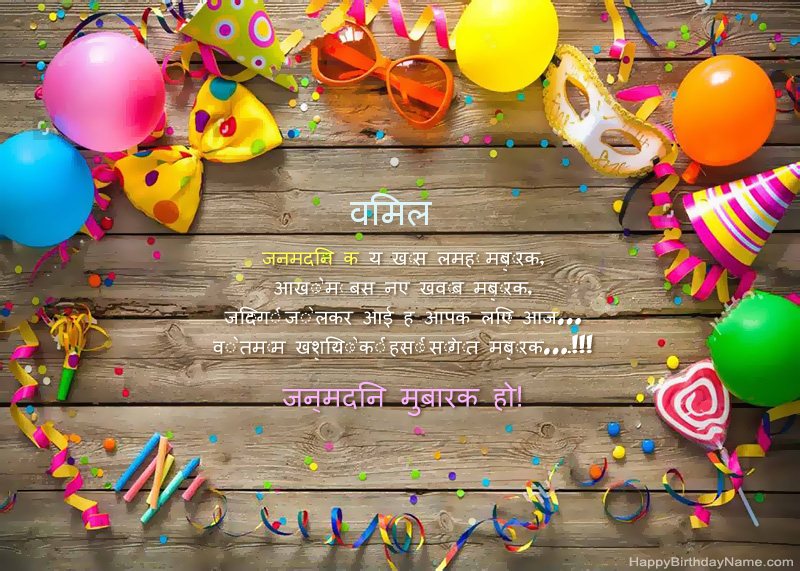 वमिल
जनमदनि क य खास लमहा मबारक,
आखोंमे बस नए खवाब मबारक,
जदिगी जो लेकर आई ह आपक लएि आज...
वो तमाम खशयिों की हसीं सौगात मबारक...!!!
जन्मदनि मुबारक हो!
HappyBirthdayName.com